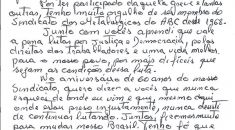 Por ter participado daquela greve e tantas
outras. Tenho muito orgulho de ser membro do
Sindicato dos Metalúrgicos do ABC desde 1968.
Junto com vocês aprendi que vale
a pena lutar por Justiça e Democracia, pelos
direitos dos Trabalhadores e uma vida melhor,
para o nosso povo, por mais difíceis que
sejam as condições dessa luta.
No aniversário de 60 anos do nosso
Sindicato, quero dizer a vocês que nunca
esqueci de onde eu vim e que, mesmo aqui
onde estou preso injustamente, nunca desisti
de continuar lutando Juntos, firmemente
para mudar nosso Brasil. Tenho fé que